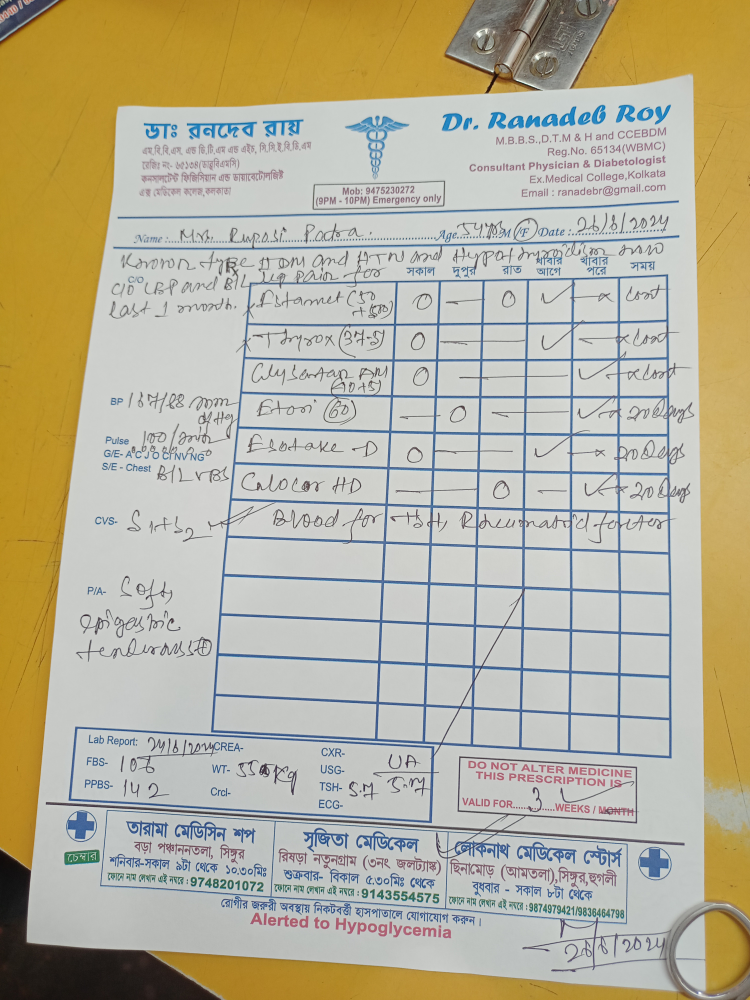 ডাঃ রনদেব রায়
এম,বি,বি,এস, এন্ড ডি,টি,এম এন্ড এইচ, সি,সি,ই,বি,ডি,এম
রেজিঃ নং- ৬৫১৩৪(ডাব্লুবিএমসি)
কনসালটেন্ট ফিজিসিয়ান এন্ড ডায়াবেটোলজিষ্ট
এক্স মেডিকেল কলেজ,কলকাতা
Mob: 9475230272
(9PM - 10PM) Emergency only
Dr. Ranadeb Roy
M.B.B.S.,D.T.M & H and CCEBDM
Reg.No. 65134(WBMC)
Consultant Physician & Diabetologist
Ex.Medical College,Kolkata
Email : ranadebr@gmail.com
Name: Mrs. Rupasi Patra. Age 54 yrs M/F Date: 26/8/2024
Known type II DM and HTN and Hypothyroidism now
C/O LBP and B/L leg pain for
last 1 month.
সকাল দুপুর রাত খাবার আগে খাবার পরে সময়
Istamet (50 + 500) O — O ✓ — x Cont
Thyrox (37.5) O — ✓ — x Cont
AM (40+5) O — ✓ x Cont
Etori (60) — O — — ✓ x 20 Days
Esotake -D O — — ✓ — x 20 Days
HD — O — ✓ x 20 Days
Blood for TSH, Rheumatoid factor
BP 167/88 mm of Hg
Pulse 100/min
G/E- A C J O CF NV NG
S/E - Chest B/L VBS
CVS- S1+S2
P/A- Soft,
epigastric
tenderness +
Lab Report: CREA- CXR-
FBS- 106 WT- 55 Kg USG- UA
PPBS- 142 Crcl- TSH- 5.7 5.7
ECG-
DO NOT ALTER MEDICINE
THIS PRESCRIPTION IS
VALID FOR 3 WEEKS / MONTH
চেম্বার
তারামা মেডিসিন শপ
বড়া পঞ্চাননতলা, সিঙ্গুর
শনিবার-সকাল ৯টা থেকে ১০.৩০মিঃ
ফোনে নাম লেখান এই নম্বরে : 9748201072
সৃজিতা মেডিকেল
রিষড়া নতুনগ্রাম (৩নং জলট্যাঙ্ক)
শুক্রবার- বিকাল ৫.৩০মিঃ থেকে
ফোনে নাম লেখান এই নম্বরে : 9143554575
লোকনাথ মেডিকেল স্টোর্স
ছিনামোড় (আমতলা),সিঙ্গুর,হুগলী
বুধবার - সকাল ৮টা থেকে
ফোনে নাম লেখান এই নম্বরে : 9874979421/9836464798
রোগীর জরুরী অবস্থায় নিকটবর্ত্তী হাসপাতালে যোগাযোগ করুন।
Alerted to Hypoglycemia
26/8/2024